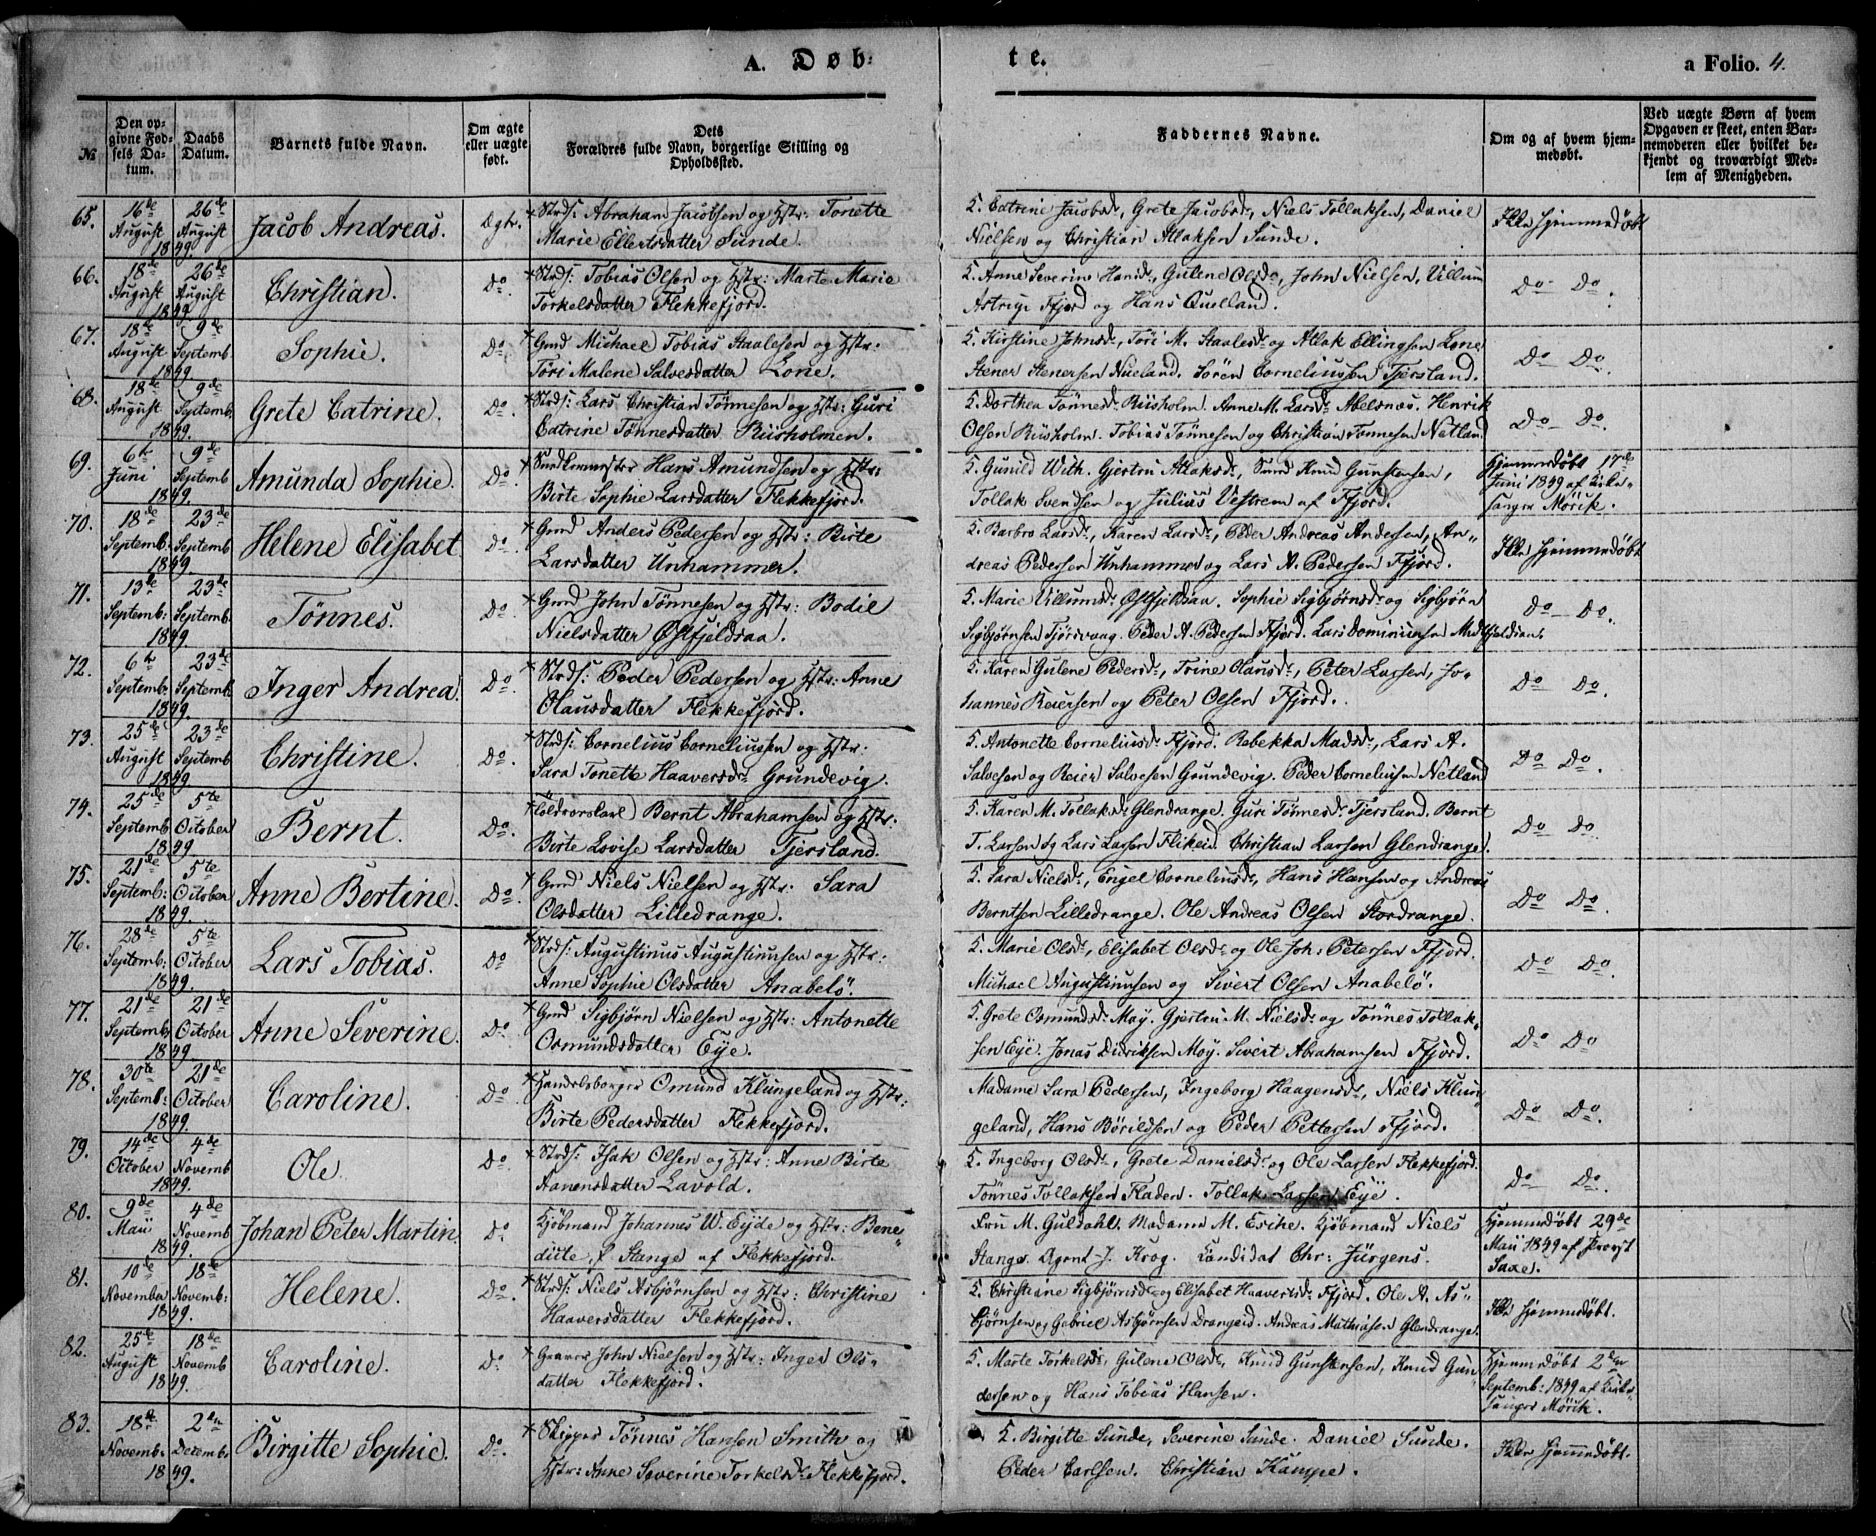 A. Døb-
te.
a Folio. 4.
№
Den op-
givne Fød-
sels Da-
tum.
Daabs
Datum.
Barnets fulde Navn.
Om ægte
eller uægte
født.
Dets
Forældres fulde Navn, borgerlige Stilling og
Opholdssted.
Faddernes Navne.
Om og af hvem hjem-
medøbt.
Ved uægte Børn af hvem
Opgaven er skeet, enten Bar-
nemoderen eller hvilket be-
kjendt og troværdigt Med-
lem af Menigheden.
65.
16de August 1849.
26de August
Jacob Andreas.
Ægte.
Strds: Abraham Jacobsen og Hstr: Tonette
Marie Ellertsdatter Sunde.
5. Catrine Jacobsdr, Grete Jacobsdr, Niels Tollaksen, Daniel
Nielsen og Christian Atlaksen Sunde.
Ikke hjemmedøbt
66.
18de August 1849.
26de August
Christian.
Do.
Strds: Tobias Olsen og Hstr: Marte Marie
Torkelsdatter Flekkefjord.
5. Anne Severine Hansdr, Gulene Olsdr, John Nielsen, Villum
Astrup Ffjord og Hans Quelland.
Do Do.
67.
18de August 1849.
9de Septemb
Sophie.
Do
Gmd Michael Tobias Staalesen og Hstr:
Töri Malene Salvesdatter Lone.
5. Kirstine Johnsdr, Töri M. Staalesdr og Atlak Ellingsen Lone
Stener Stenersen Nueland. Sören Corneliussen Tjersland.
Do Do.
68.
18de August 1849.
9de Septemb.
Grete Catrine.
Do.
Strds: Lars Christian Tönnesen og Hstr: Guri
Catrine Tönnesdatter Riisholmen.
5. Dorthea Tönnesdr Riisholm. Anne M. Larsdr Abelsnæs. Henrik
Olsen Riisholm. Tobias Tönnesen og Christian Tönnesen Netland
Do Do.
69.
6te Juni 1849.
9de Septemb
Amunda Sophie.
Do.
Hans Amundsen og Hstr:
Birte Sophie Larsdatter Flekkefjord.
5. Gunild With. Gjertru Atlaksdr, Smed Knud Gunstensen,
Tollak Svendsen og Julius Vestrem af Ffjord.
Hjemmedøbt 17de
Juni 1849 af Kirke-
sanger Mörik.
70.
18de Septemb: 1849
23de Septemb
Helene Elisabet
Do.
Gmd Anders Pedersen og Hstr: Birte
Larsdatter Unhammer.
5. Barbro Larsdr, Karen Larsdr, Peder Andreas Andersen, An-
dreas Pedersen Unhammer og Lars A. Pedersen Ffjord.
Ikke hjemmedøbt
71.
13de Septemb: 1849
23de Septemb.
Tönnes.
Do.
Gmd John Tönnesen og Hstr: Bodil
Nielsdatter Østfjeldsaa.
5. Marie Villumsdr Østfjeldsaa. Sophie Sigbjørnsdr og Sigbjørn
Sigbjørnsen Tjörsvaag. Peder A. Pedersen Ffjord. Lars Dominiusen
Do Do.
72.
6te Septemb: 1849.
23de Septemb.
Inger Andrea.
Do.
Strds: Peder Pedersen og Hstr: Anne
Olausdatter Flekkefjord.
5. Karen Gulene Pedersdr, Trine Olausdr, Peter Larsen, Jo-
hannes Reiersen og Peter Olsen Ffjord.
Do Do.
73.
25de August 1849.
23de Septemb
Christine.
Do.
Strds: Cornelius Corneliussen og Hstr:
Sara Tonette Haaversdr Grundevig.
5. Antonette Corneliusdr Ffjord. Rebekka Madsdr, Lars A.
Salvesen og Reier Salvesen Grundevig. Peder Corneliusen Netland
Do Do.
74.
25de Septemb 1849
5te October
Bernt.
Do.
Bernt Abrahamsen og Hstr:
Birte Lovise Larsdatter Tjersland.
5. Karen M. Tollaksdr Glendrange. Guri Tönnesdr Tjersland. Bernt
T. Larsen og Lars Larsen Flikeid. Christian Larsen Glendrange.
Do Do.
75.
21de Septemb: 1849.
5te October
Anne Bertine.
Do.
Gmd Niels Nielsen og Hstr: Sara
Olsdatter Lilledrange.
5. Sara Nielsdr, Engel Corneliusdr, Hans Hansen og Andreas
Berntsen Lilledrange. Ole Andreas Olsen Stordrange.
Do Do.
76.
28de Septemb: 1849.
5te October
Lars Tobias.
Do
Strds: Augustinus Augustinusen og Hstr:
Anne Sophie Olsdatter Anabelö.
5. Marie Olsdr, Elisabet Olsdr og Ole Joh: Petersen Ffjord.
Michael Augustinusen og Sivert Olsen Anabelö.
Do Do.
77.
21de Septemb 1849.
21de October
Anne Severine.
Do.
Gmd Sigbjörn Nielsen og Hstr: Antonette
Osmundsdatter Eye.
5. Grete Osmundsdr Moy. Gjertru M. Nielsdr og Tönnes Tollak-
sen Eye. Jonas Didriksen Moy. Sivert Abrahamsen Ffjord.
Do Do
78.
30te Septemb: 1849.
21de October
Caroline.
Do.
Handelsborger Omund Klungeland og Hstr:
Birte Pedersdatter Flekkefjord.
Madame Sara Pedersen, Ingeborg Haagensdr, Niels Klun-
geland, Hans Börildsen og Peder Pettersen Ffjord.
Do Do.
79.
14de October 1849.
4de Novemb
Ole.
Do.
Strds: Isak Olsen og Hstr: Anne Birte
Aanensdatter Lavold.
5. Ingeborg Olsdr, Grete Danielsdr og Ole Larsen Flekkefjord.
Tönnes Tollaksen Fladen. Tollak Larsen Eye.
Do Do.
80.
9de Maii 1849.
4de Novemb
Johan Peter Martin.
Do
Kjöbmand Johannes W. Eyde og Hstr: Bene-
dicte f. Stange af Flekkefjord.
Fru M. Guldahl. Madame M. Erike. Kjöbmand Niels
Stange. Agent J. Krog. Candidat Chr: Jürgens.
Hjemmedøbt 29de
Maii 1849 af Provst
Saxe.
81.
10de November 1849.
18de Novemb:
Helene.
Do.
Strds: Niels Asbjørnsen og Hstr: Christine
Haaversdatter Flekkefjord.
5. Christiane Sigbjörnsdr og Elisabet Haaversdr Ffjord. Ole A. As-
bjørnsen og Gabriel Asbjørnsen Drangeid. Andreas Mathiasen Glendrange.
Ikke hjemmedøbt.
82.
25de August 1849.
18de Novemb
Caroline.
Do.
Graver John Nielsen og Hstr: Inger Ols-
datter Flekkefjord.
5. Marte Torkelsdr, Gulene Olsdr, Knud Gunstensen, Knud Gun-
dersen og Hans Tobias Hansen.
Hjemmedøbt 2den
Septemb: 1849 af Kirke-
sanger Mörik.
83.
18de Novemb. 1849.
2den Decemb.
Birgitte Sophie.
Do.
Skipper Tönnes Hansen Smith og
Hstr: Anne Severine Torkelsdr Flekkefjord.
5. Birgitte Sunde, Severine Sunde. Daniel Sunde.
Peder Carlsen. Christian Kampe.
Ikke hjemmedøbt.